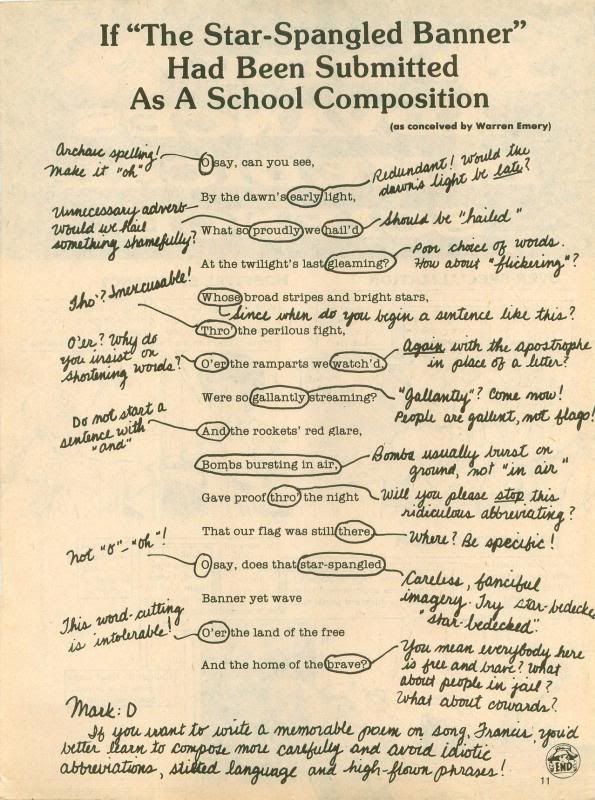 If "The Star-Spangled Banner"
Had Been Submitted
As A School Composition
(as conceived by Warren Emery)
Archaic spelling!
Make it "oh"
O say, can you see,
Redundant! Would the
dawn's light be late?
By the dawn's early light,
Unnecessary adverb
Would we hail
something shamefully?
What so proudly we hail'd
Should be "hailed"
At the twilight's last gleaming?
Poor choice of words.
How about "flickering"?
Tho'? Inexcusable!
Whose broad stripes and bright stars,
Since when do you begin a sentence like this?
Thro' the perilous fight,
O'er? Why do
you insist on
shortening words?
O'er the ramparts we watch'd,
Again with the apostrophe
in place of a letter?
Were so gallantly streaming?
"Gallantly"? Come now!
People are gallent, not flags!
Do not start a
sentence with
"and"
And the rockets' red glare,
Bombs bursting in air,
Bombs usually burst on
ground, not "in air"
Gave proof thro' the night
Will you please stop this
ridiculous abbreviating?
That our flag was still there,
Where? Be specific!
Not "o" – "oh"!
O say, does that star-spangled
Careless, fanciful
imagery. Try star-bedecked
"star-bedecked".
Banner yet wave
This word-cutting
is intolerable!
O'er the land of the free
And the home of the brave?
You mean everybody here
is free and brave? What
about people in jail?
What about cowards?
Mark: D
If you want to write a memorable poem on song, Francis, you'd
better learn to compose more carefully and avoid idiotic
abbreviations, stilted language and high-flown phrases!
END
11